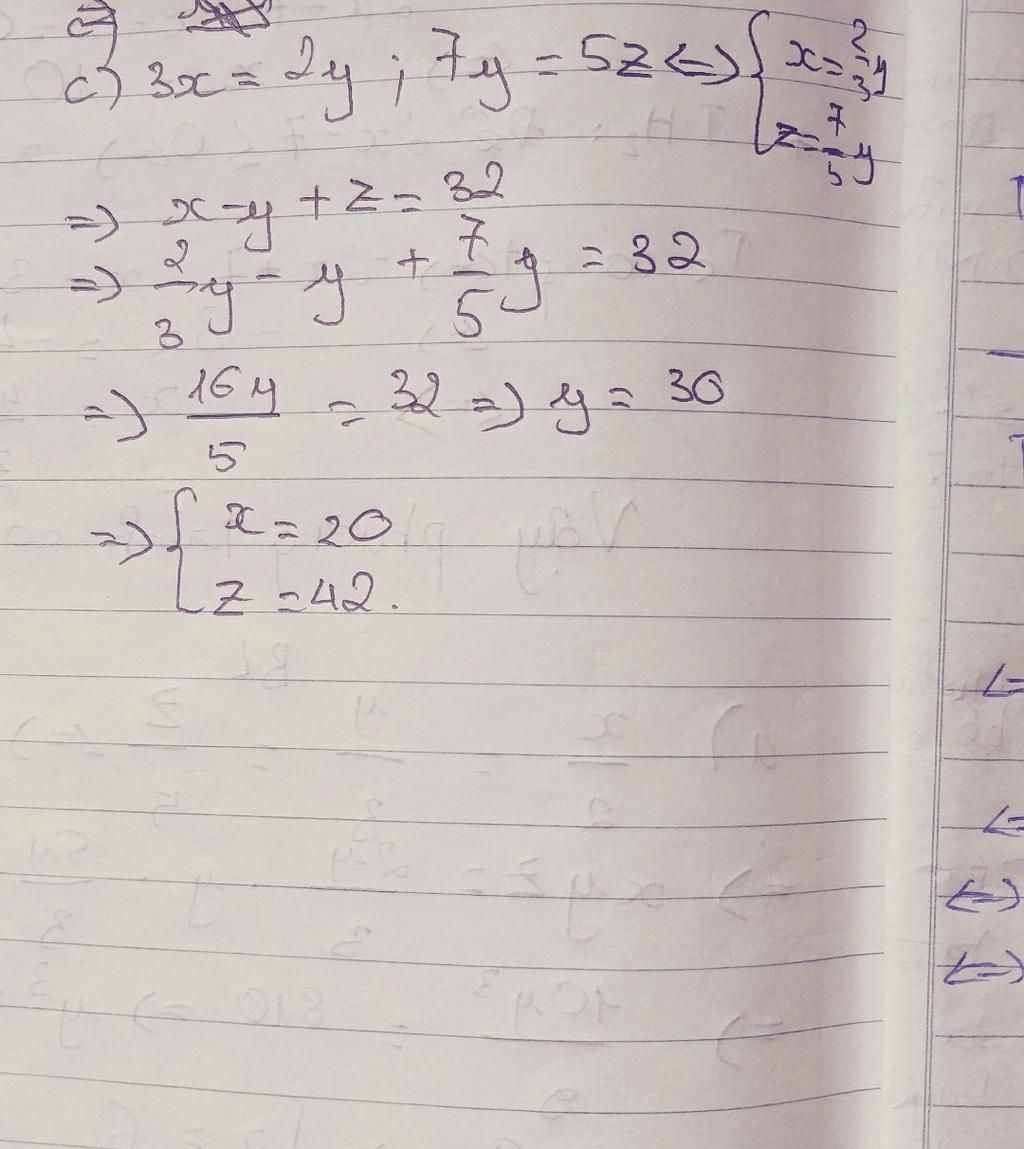 c) 3x = 2y ; 7y = 5z <=> { x = 2/3 y
z = 7/5 y
=> x - y + z = 32
=> 2/3 y - y + 7/5 y = 32
=> 16y/5 = 32 => y = 30
=> { x = 20
z = 42.